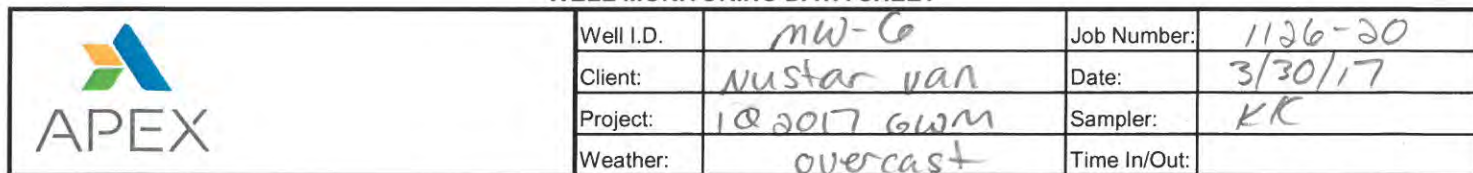 Well I.D. MW-6 Job Number: 1126-20
Client: Nustar Van Date: 3/30/17
APEX Project: 1Q 2017 GWM Sampler: KK
Weather: overcast Time In/Out: